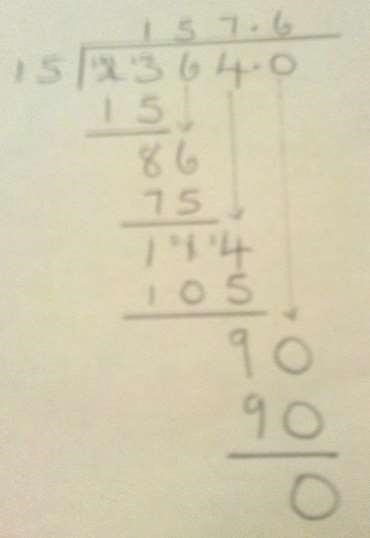 157.6
15)2364.0
15
86
75
114
105
90
90
0